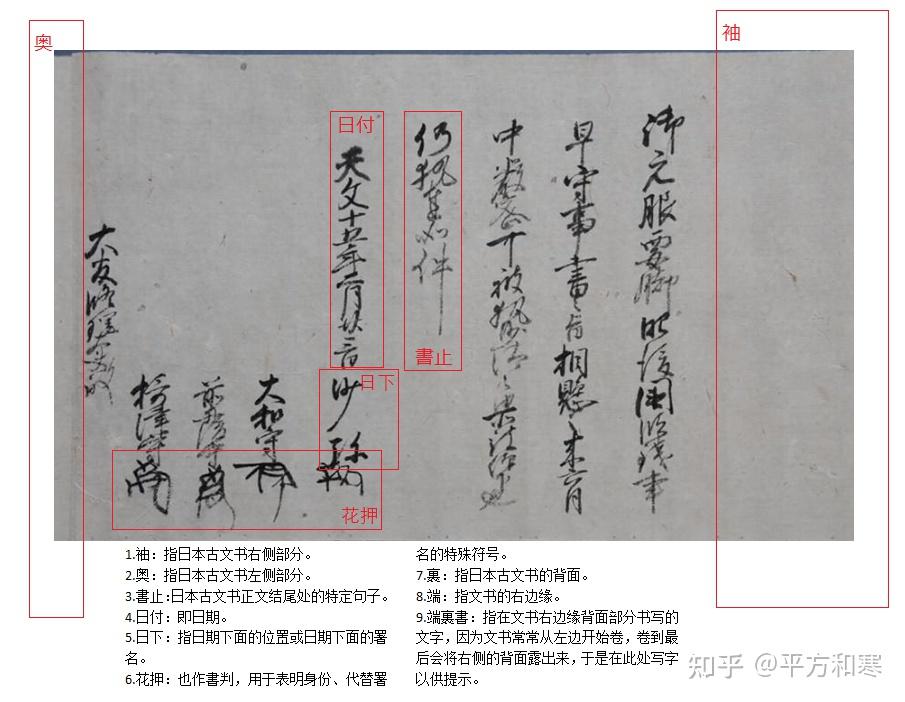 奥
袖
日付
書止
日下
花押
御元服要脚
早
書
相懸
来六月
中
可被執
仍執達如件
天文十五年二月廿三日
沙弥
大和守
摂津守
大友修理大夫殿
1.袖：指日本古文书右侧部分。
2.奥：指日本古文书左侧部分。
3.書止:日本古文书正文结尾处的特定句子。
4.日付：即日期。
5.日下：指日期下面的位置或日期下面的署
名。
6.花押：也作書判，用于表明身份、代替署
名的特殊符号。
7.裏：指日本古文书的背面。
8.端：指文书的右边缘。
9.端裏書：指在文书右边缘背面部分书写的
文字，因为文书常常从左边开始卷，卷到最
后会将右侧的背面露出来，于是在此处写字
以供提示。
知乎 @平方和寒